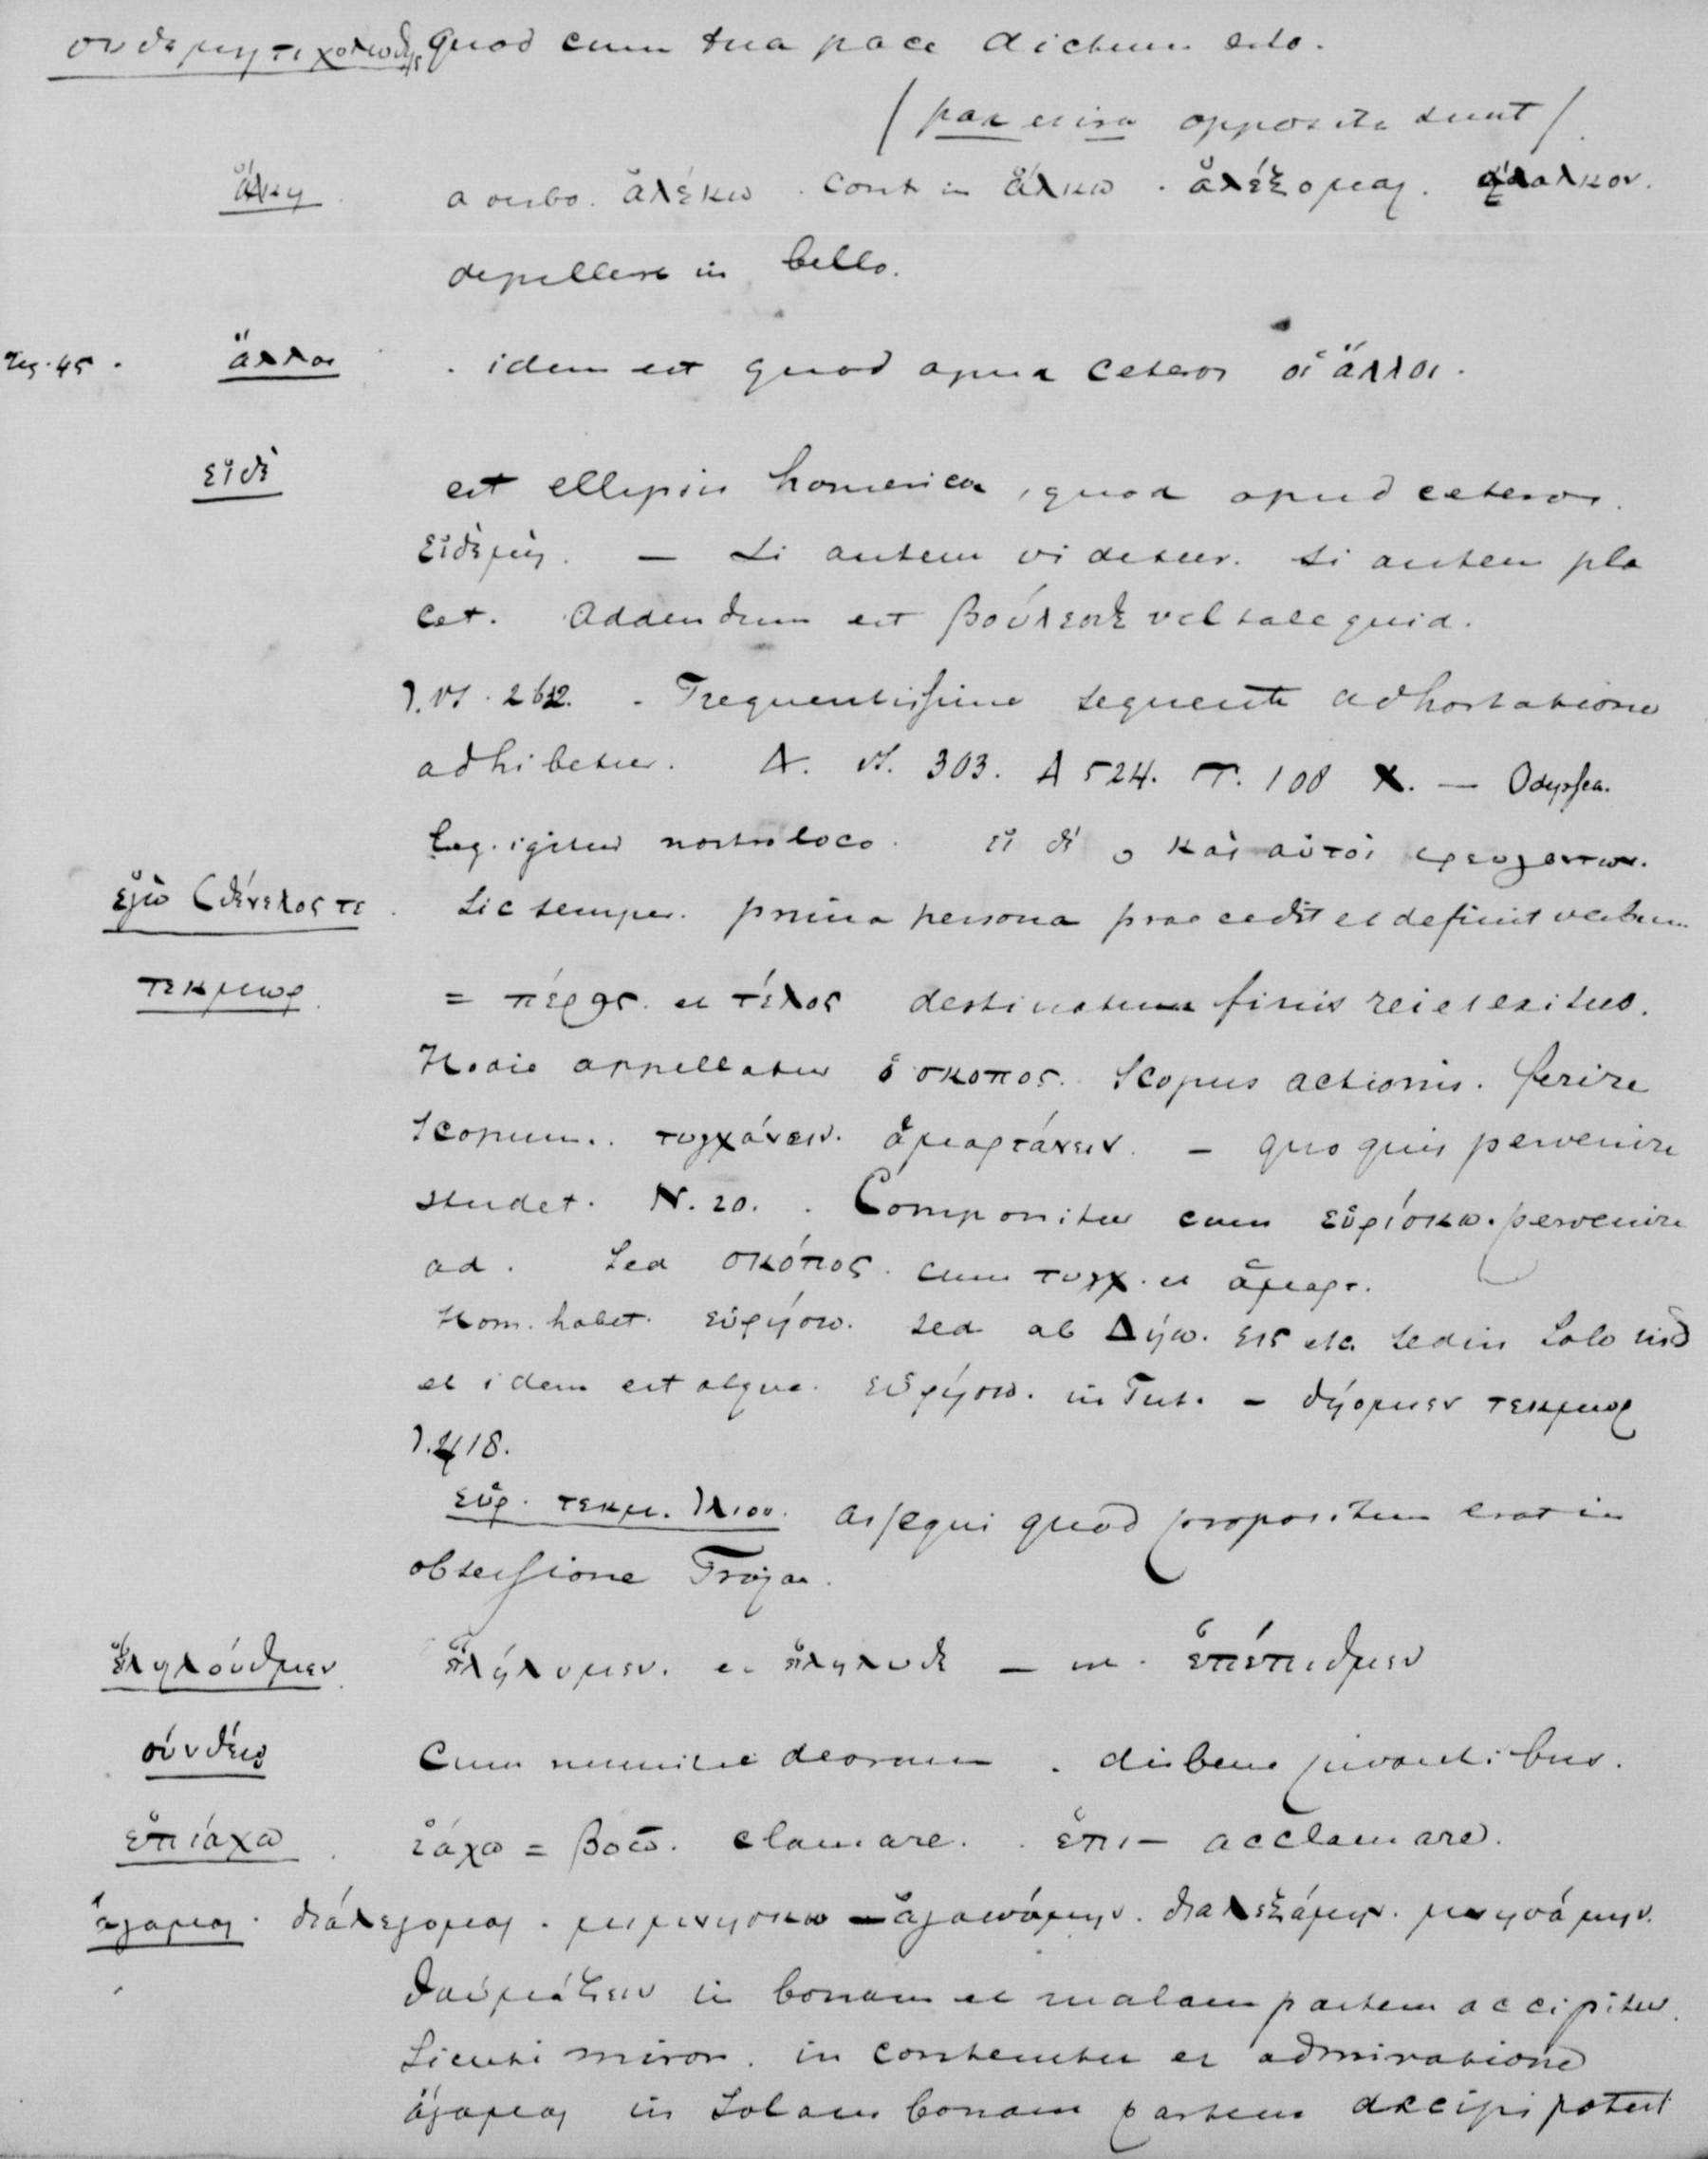 συ δε μη τι χολωθῇς quod cum tua pace dictum esto.
/ pax et ira opposita sunt /
ἀλκη a verbo. ἀλέκω. cont in ἄλκω. ἀλέξομαι. ἄλαλκον.
depellere in bello.
45. ἄλλοι. idem est quod apud ceteros οἱ ἄλλοι.
εἰ δὲ est ellipsis homerica, quod apud ceteros.
εἰ δὲ μὴ. — Si autem videtur. Si autem pla
cet. Addendum est βούλεσθε vel tale quid.
I. vs. 262. Frequentissime sequente adhortatione
adhibetur. Α. vs. 303. Α 524. Τ. 108 Χ. — Odyssea.
Leg. igitur nostro loco. εἰ δέ, καὶ αὐτοὶ φευγοντων.
ἐγὼ Σθένελος τε. Sic semper. prima persona praecedit et definit verbum
τεκμωρ. = πέρας. et τέλος destinatum finis rei et exitus.
Hodie appellatur ὁ σκοπος. Scopus actionis. ferire
scopum. τυγχάνειν. ἁμαρτάνειν. — quo quis pervenire
studet. N. 20. Componitur cum εὑρίσκω. pervenire
ad. Sed σκόπος. cum τυγχ. et ἁμαρτ.
Hom. habet. εὑρήσω. sed ab Δήω. εις etc. sed in solo
et idem est atque. εὑρήσω. in Fut. — δήομεν τεκμωρ
I. 418.
εὑρ. τεκμ. Ἰλιου. assequi quod propositum erat in
obsessione Trojae.
εἰληλούθμεν. ἐλήλυμεν. et — ut. ἐπέπιθμεν
σύν θέῳ cum numine deorum. diis bene juvantibus.
ἐπιάχω. ἰάχω = βοῶ. clamare. ἐπι — acclamare.
ἄγαμαι. διάλεγομαι. μιμνησκω — ἀγασάμην. διαλεξάμην. μνησάμην.
θαυμάζειν in bonam et malam partem accipitur.
Sicuti miror. in contemtu et admiratione
ἄγαμαι in solam bonam partem accipi potest